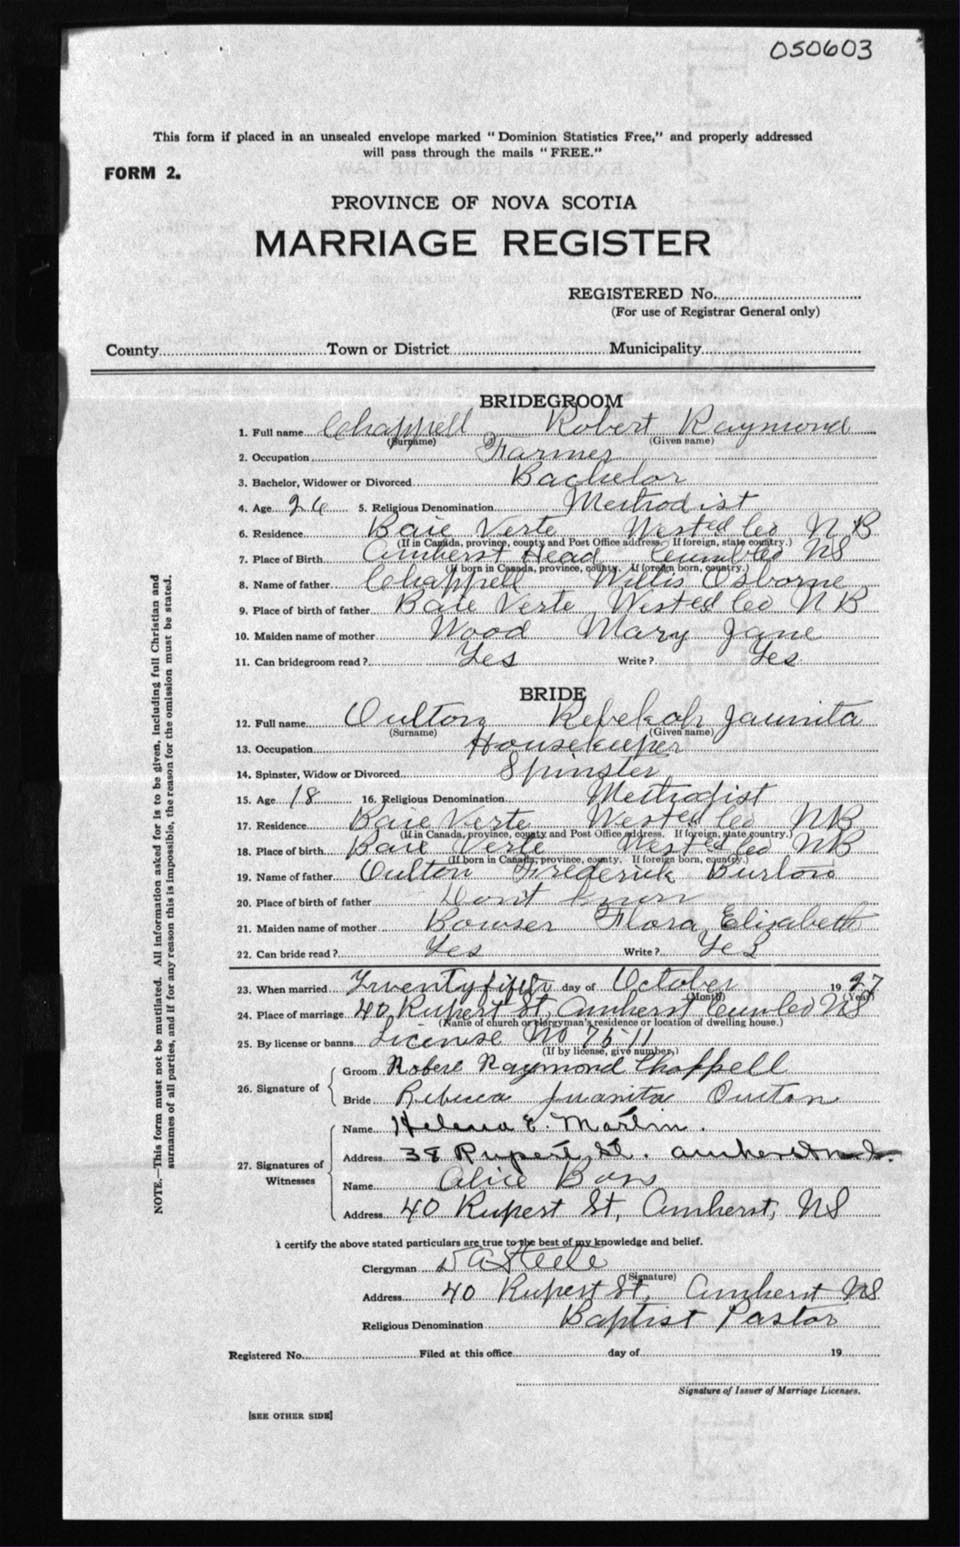 050603
This form if placed in an unsealed envelope marked "Dominion Statistics Free," and properly addressed
will pass through the mails "FREE."
FORM 2.
PROVINCE OF NOVA SCOTIA
MARRIAGE REGISTER
REGISTERED No.
(For use of Registrar General only)
County Town or District Municipality
BRIDEGROOM
1. Full name Chappell Robert Raymond
(Surname) (Given name)
2. Occupation Farmer
3. Bachelor, Widower or Divorced Bachelor
4. Age 26 5. Religious Denomination Methodist
6. Residence Baie Verte Wested Co N B
(If in Canada, province, county and Post Office address. If foreign, state country.)
7. Place of Birth Amherst Head Cumbled NS
(If born in Canada, province, county. If foreign born, country.)
8. Name of father Chappell Willis Osborne
9. Place of birth of father Baie Verte Wested Co N B
10. Maiden name of mother Wood Mary Jane
11. Can bridegroom read? Yes Write? Yes
BRIDE
12. Full name Oulton Rebekah Jaunita
(Surname) (Given name)
13. Occupation Housekeeper
14. Spinster, Widow or Divorced Spinster
15. Age 18 16. Religious Denomination Methodist
17. Residence Baie Verte Wested Co NB
(If in Canada, province, county and Post Office address. If foreign, state country.)
18. Place of birth Baie Verte Wested Co NB
(If born in Canada, province, county. If foreign born, country.)
19. Name of father Oulton Frederick Burton
20. Place of birth of father Dont know
21. Maiden name of mother Bowser Flora Elizabeth
22. Can bride read? Yes Write? Yes
23. When married Twentyfifth day of October 1927
(Month) (Year)
24. Place of marriage 40 Rupert St, Amherst Cumb Co NS
(Name of church or clergyman's residence or location of dwelling house.)
25. By license or banns License No 7511
(If by license, give number.)
26. Signature of Groom Robert Raymond Chappell
Bride Rebecca Juanita Oulton
27. Signatures of Witnesses Name Helena E. Martin.
Address 38 Rupert St. Amherst N.S.
Name Alice
Address 40 Rupert St, Amherst, NS
I certify the above stated particulars are true to the best of my knowledge and belief.
Clergyman D A Steele
(Signature)
Address 40 Rupert St, Amherst NS
Religious Denomination Baptist Pastor
Registered No. Filed at this office day of 19
Signature of Issuer of Marriage Licenses.
[SEE OTHER SIDE]
NOTE.—This form must not be mutilated. All information asked for is to be given, including full Christian and
surnames of all parties, and if for any reason this is impossible, the reason for the omission must be stated.